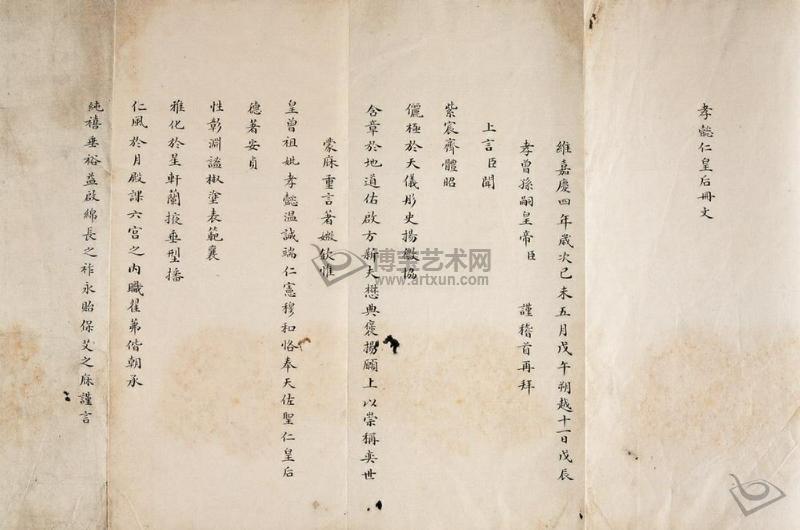 孝懿仁皇后冊文
維嘉慶四年歲次己未五月戊午朔越十一日戊辰
孝曾孫嗣皇帝臣 謹稽首再拜
上言臣聞
紫宸齊體昭
儷極於天儀彤史揚徽協
含章於地道佑啟方新夫懋典褒揚願上以崇稱奕世
蒙庥重言著媺欽惟
皇曾祖妣孝懿温誠端仁憲穆和恪奉天佐聖仁皇后
德著安貞
性彰淵謐椒塗表範襄
雅化於星軒蘭掖垂型播
仁風於月殿課六宮之內職翟茀偕朝承
純禧垂裕益啟綿長之祚永貽保艾之庥謹言
博宝艺术网
www.artxun.com